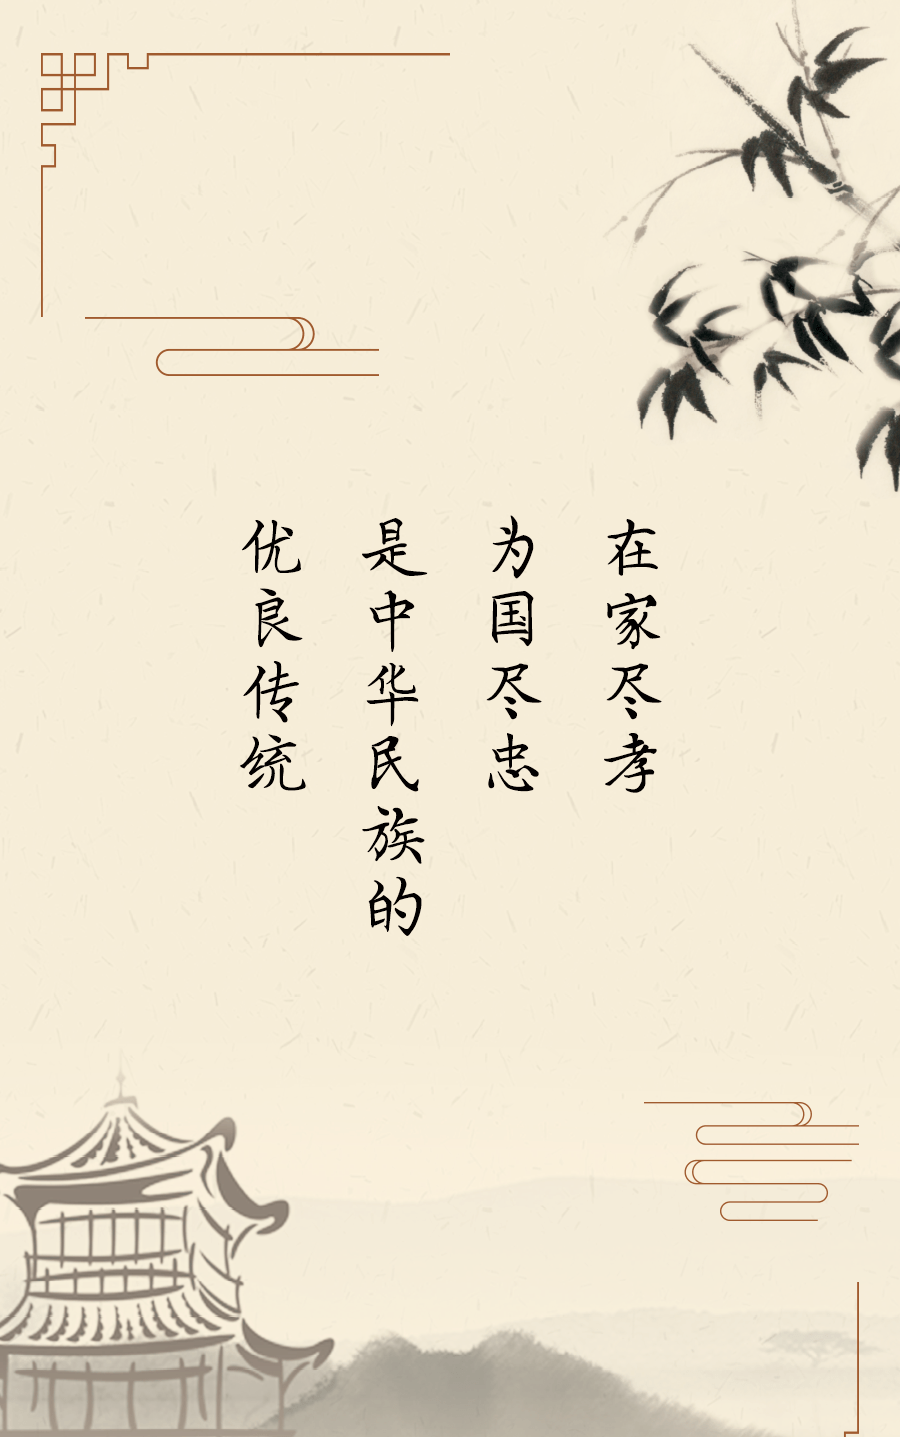 在家尽孝
为国尽忠
是中华民族的
优良传统